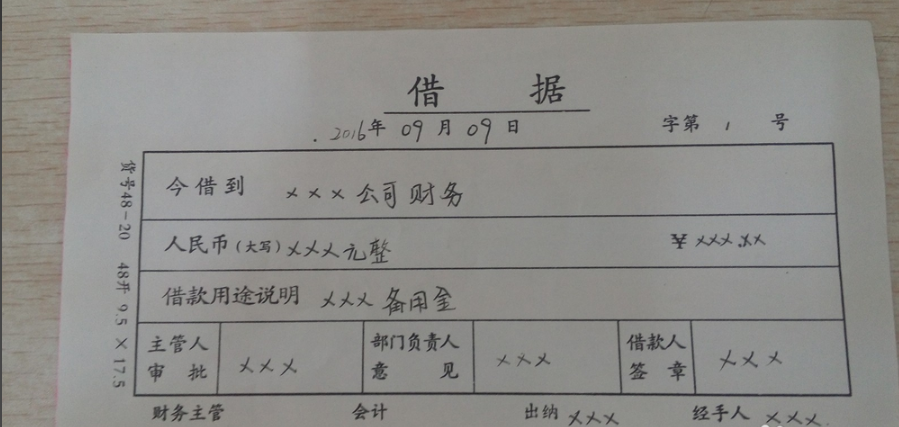 借 据
2016年 09 月 09 日 字第 1 号
今借到 ××× 公司财务
人民币(大写)×××元整 ¥ ×××.××
借款用途说明 ××× 备用金
主管人审批 ××× 部门负责人意见 ××× 借款人签章 ×××
财务主管 会计 出纳 ××× 经手人 ×××
货号48-20 48开 9.5×17.5